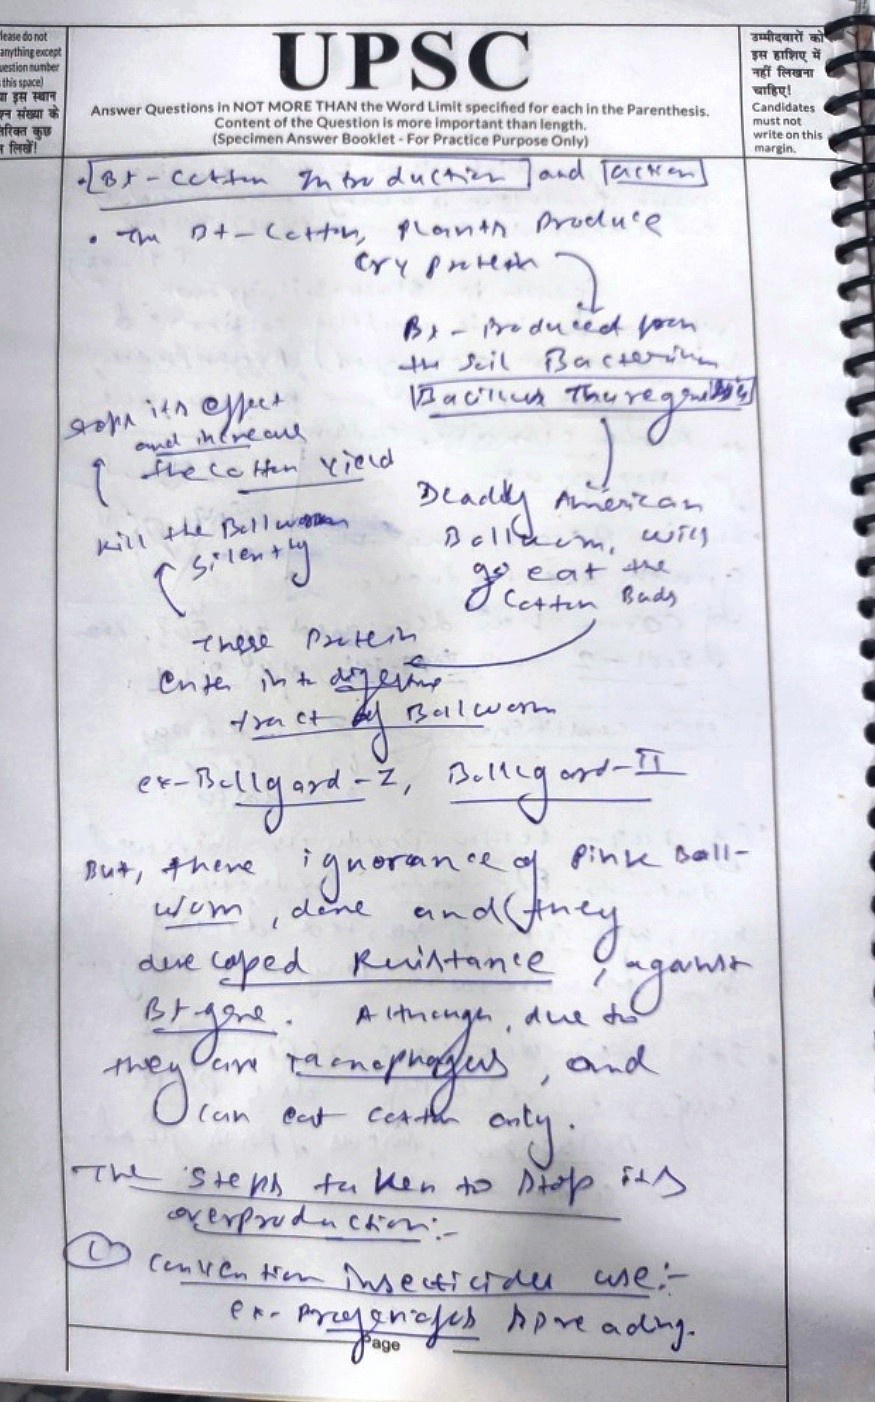 lease do not
anything except
uestion number
this space)
या इस स्थान
श्न संख्या के
तिरिक्त कुछ
न लिखें!
UPSC
Answer Questions in NOT MORE THAN the Word Limit specified for each in the Parenthesis.
Content of the Question is more important than length.
(Specimen Answer Booklet - For Practice Purpose Only)
उम्मीदवारों को
इस हाशिए में
नहीं लिखना
चाहिए!
Candidates
must not
write on this
margin.
• Bt - Cotton Introduction and action
• The Bt - Cotton, plants produce
Cry protein
Bt - Produced from
the soil Bacterium
Bacillus
Deadly American
Bollworm, will
go eat the
Cotton Buds
These Protein
Enter into digestive
tract of Bollworm
Kill the Bollworm
silently
stops its effect
and increase
the cotton yield
ex - Bollgard - I, Bollgard - II
But, there ignorance of pink Boll-
worm, done and they
developed Resistance, against
Bt gene. Although, due to
they are, and
can eat cotton only.
The steps taken to stop its
overproduction:-
① Convention insecticides use:-
ex- spreading.
Page